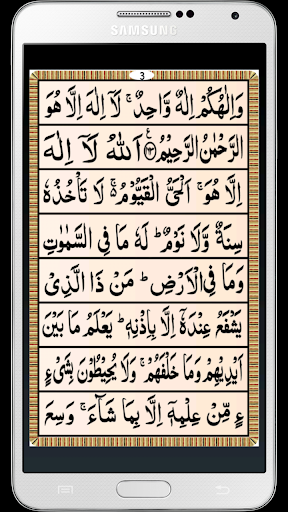 SAMSUNG
3
وَاِلٰهُكُمْ اِلٰهٌ وَّاحِدٌ ۚ لَاۤ اِلٰهَ اِلَّا هُوَ
الرَّحْمٰنُ الرَّحِيْمُ ۝ اَللّٰهُ لَاۤ اِلٰهَ
اِلَّا هُوَ ۚ اَلْحَيُّ الْقَيُّوْمُ ۚ لَا تَاْخُذُهٗ
سِنَةٌ وَّلَا نَوْمٌ ؕ لَهٗ مَا فِي السَّمٰوٰتِ
وَمَا فِي الْاَرْضِ ؕ مَنْ ذَا الَّذِيْ
يَشْفَعُ عِنْدَهٗۤ اِلَّا بِاِذْنِهٖ ؕ يَعْلَمُ مَا بَيْنَ
اَيْدِيْهِمْ وَمَا خَلْفَهُمْ ۚ وَلَا يُحِيْطُوْنَ بِشَيْءٍ
ءٍ مِّنْ عِلْمِهٖۤ اِلَّا بِمَا شَآءَ ۚ وَسِعَ